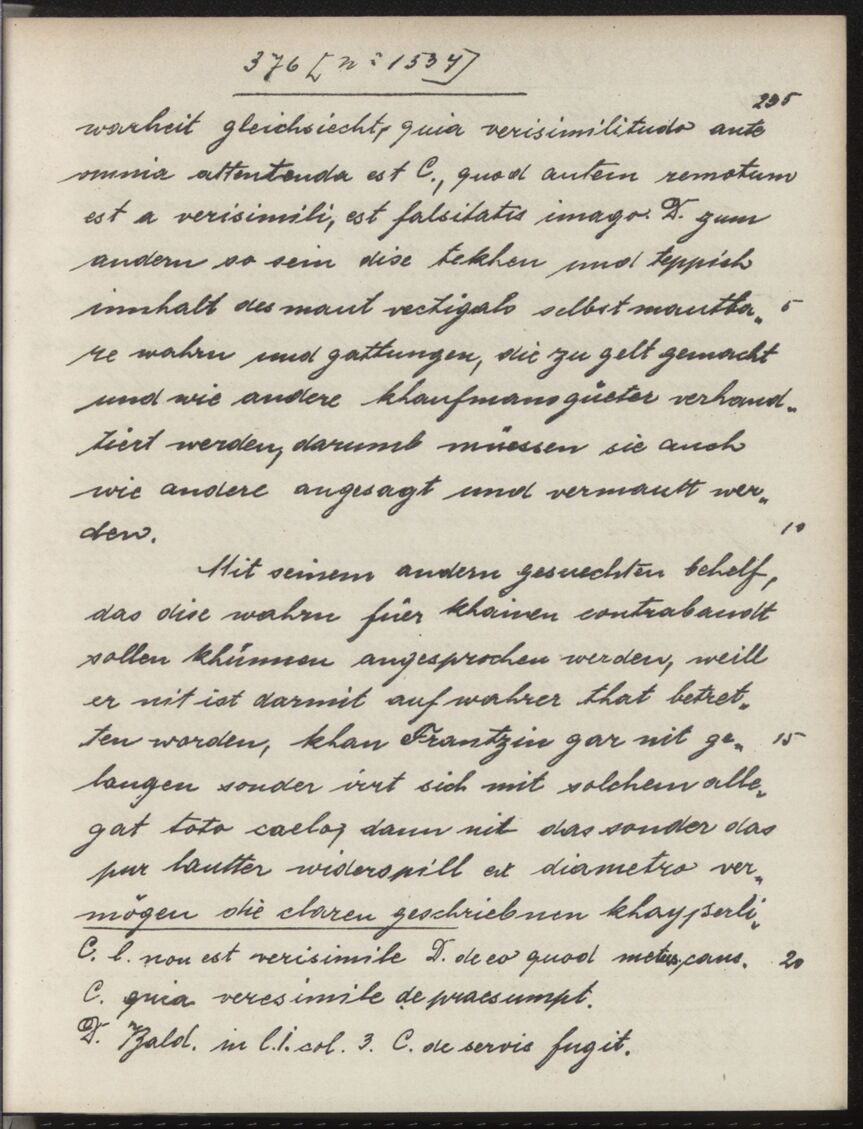 376 [nº 1534]
235
warheit gleichsiecht, quia verisimilitudo ante
omnia attentenda est C., quod autem remotum
est a verisimili, est falsitatis imago. D. zum
andern so sein dise tekhen und teppich
innhalt des maut vectigals selbst mautba„ 5
re wahrn und gattungen, die zu gelt gemacht
und wie andere khaufmansgüeter verhand„
tiert werden, darumb müessen sie auch
wie andere angesagt und vermautt wer„
den. 10
Mit seinem andern gesuechten behelf,
das dise wahrn füer khainen contrabandt
sollen khünnen angesprochen werden, weill
er nit ist darmit auf wahrer that betret„
ten worden, khan Frantzin gar nit ge„ 15
langen sonder irrt sich mit solchem alle„
gat toto caelo, dann nit das sonder das
pur lautter widerspill ex diametro ver„
mögen die claren geschriebnen khayßerli„
C. l. non est verisimile D. de eo quod metus caus. 20
C. quia veresimile de praesumpt.
D. Bald. in l.1. col. 3. C. de servis fugit.